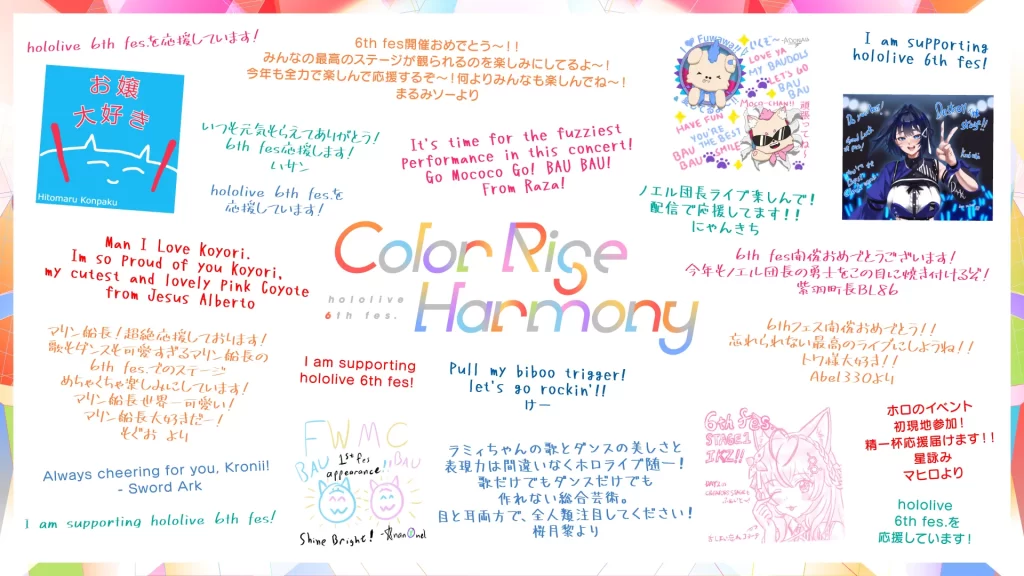 hololive 6th fes.を応援しています!
お嬢
大好き
Hitomaru Konpaku
6th fes開催おめでとう〜!!
みんなの最高のステージが観られるのを楽しみにしてるよ〜!
今年も全力で楽しんで応援するぞ〜!何よりみんなも楽しんでね〜!
まるみソーより
いつも元気もらえてありがとう!
6th fes応援します!
いサン
hololive 6th fes.を
応援しています!
It's time for the fuzziest
Performance in this concert!
Go Mococo Go! BAU BAU!
From Raza!
I ♥ Fuwawa!!
LOVE YA
MY BAUDOLS
LET'S GO
BAU
BAU
MOCO-CHAN!!
頑張ってね〜
HAVE FUN
YOU'RE
THE BEST
BAU
BAU
SMILE
I am supporting
hololive 6th fes!
ノエル団長ライブ楽しんで!
配信で応援してます!!
にゃんきち
Man I Love Koyori.
Im so Proud of you Koyori,
my cutest and lovely Pink Coyote
from Jesus Alberto
Color Rise
Harmony
hololive
6th fes.
6th fes開催おめでとうございます!
今年もノエル団長の勇士をこの目に焼き付けるぞ!
紫羽町長BL86
マリン船長!超絶応援しております!
歌もダンスも可愛すぎるマリン船長の
6th fes.でのステージ
めちゃくちゃ楽しみにしています!
マリン船長世界一可愛い!
マリン船長大好きだー!
そぐお より
I am supporting
hololive 6th fes!
Pull my biboo trigger!
let's go rockin'!!
けー
6thフェス開催おめでとう!!
忘れられない最高のライブにしようね!!
トワ様大好き!!
Abel330より
Always cheering for you, Kronii!
- Sword Ark
I am supporting hololive 6th fes!
FWMC
BAU
1st fes
appearance!!
BAU
Shine Bright!
ラミィちゃんの歌とダンスの美しさと
表現力は間違いなくホロライブ随一!
歌だけでもダンスだけでも
作れない総合芸術。
目と耳両方で、全人類注目してください!
桜月黎より
6th fes
STAGE1
ホロのイベント
初現地参加!
精一杯応援届けます!!
星詠み
マヒロより
hololive
6th fes.を
応援しています!